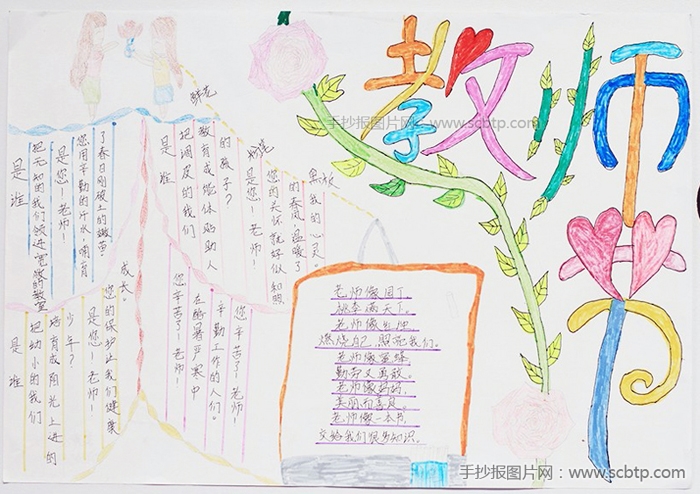 教师节
手抄报图片网：www.scbtp.com
献花
是谁
把无知的我们领进宽敞的教室
是您！老师！
您用辛勤的汗水哺育
了春日刚破土的嫩苗！
是谁
把调皮的我们
教育成能体贴助人
的孩子？
是您！老师！
您的关怀就好似和煦
的春风，温暖了
我的心灵。
黑板
是谁
把幼小的我们
培育成阳光上进的
少年？
是您！老师！
您的保护让我们健康
成长。
您辛苦了！老师！
在酷暑严寒中
辛勤工作的人们。
您辛苦了！老师！
老师像园丁
桃李满天下。
老师像
燃烧自己，照亮我们。
老师像蜜蜂
勤劳又勇敢。
老师像妈妈
美丽而善良。
老师像一本书
交给我们很多知识。
手抄报图片网：www.scbtp.com